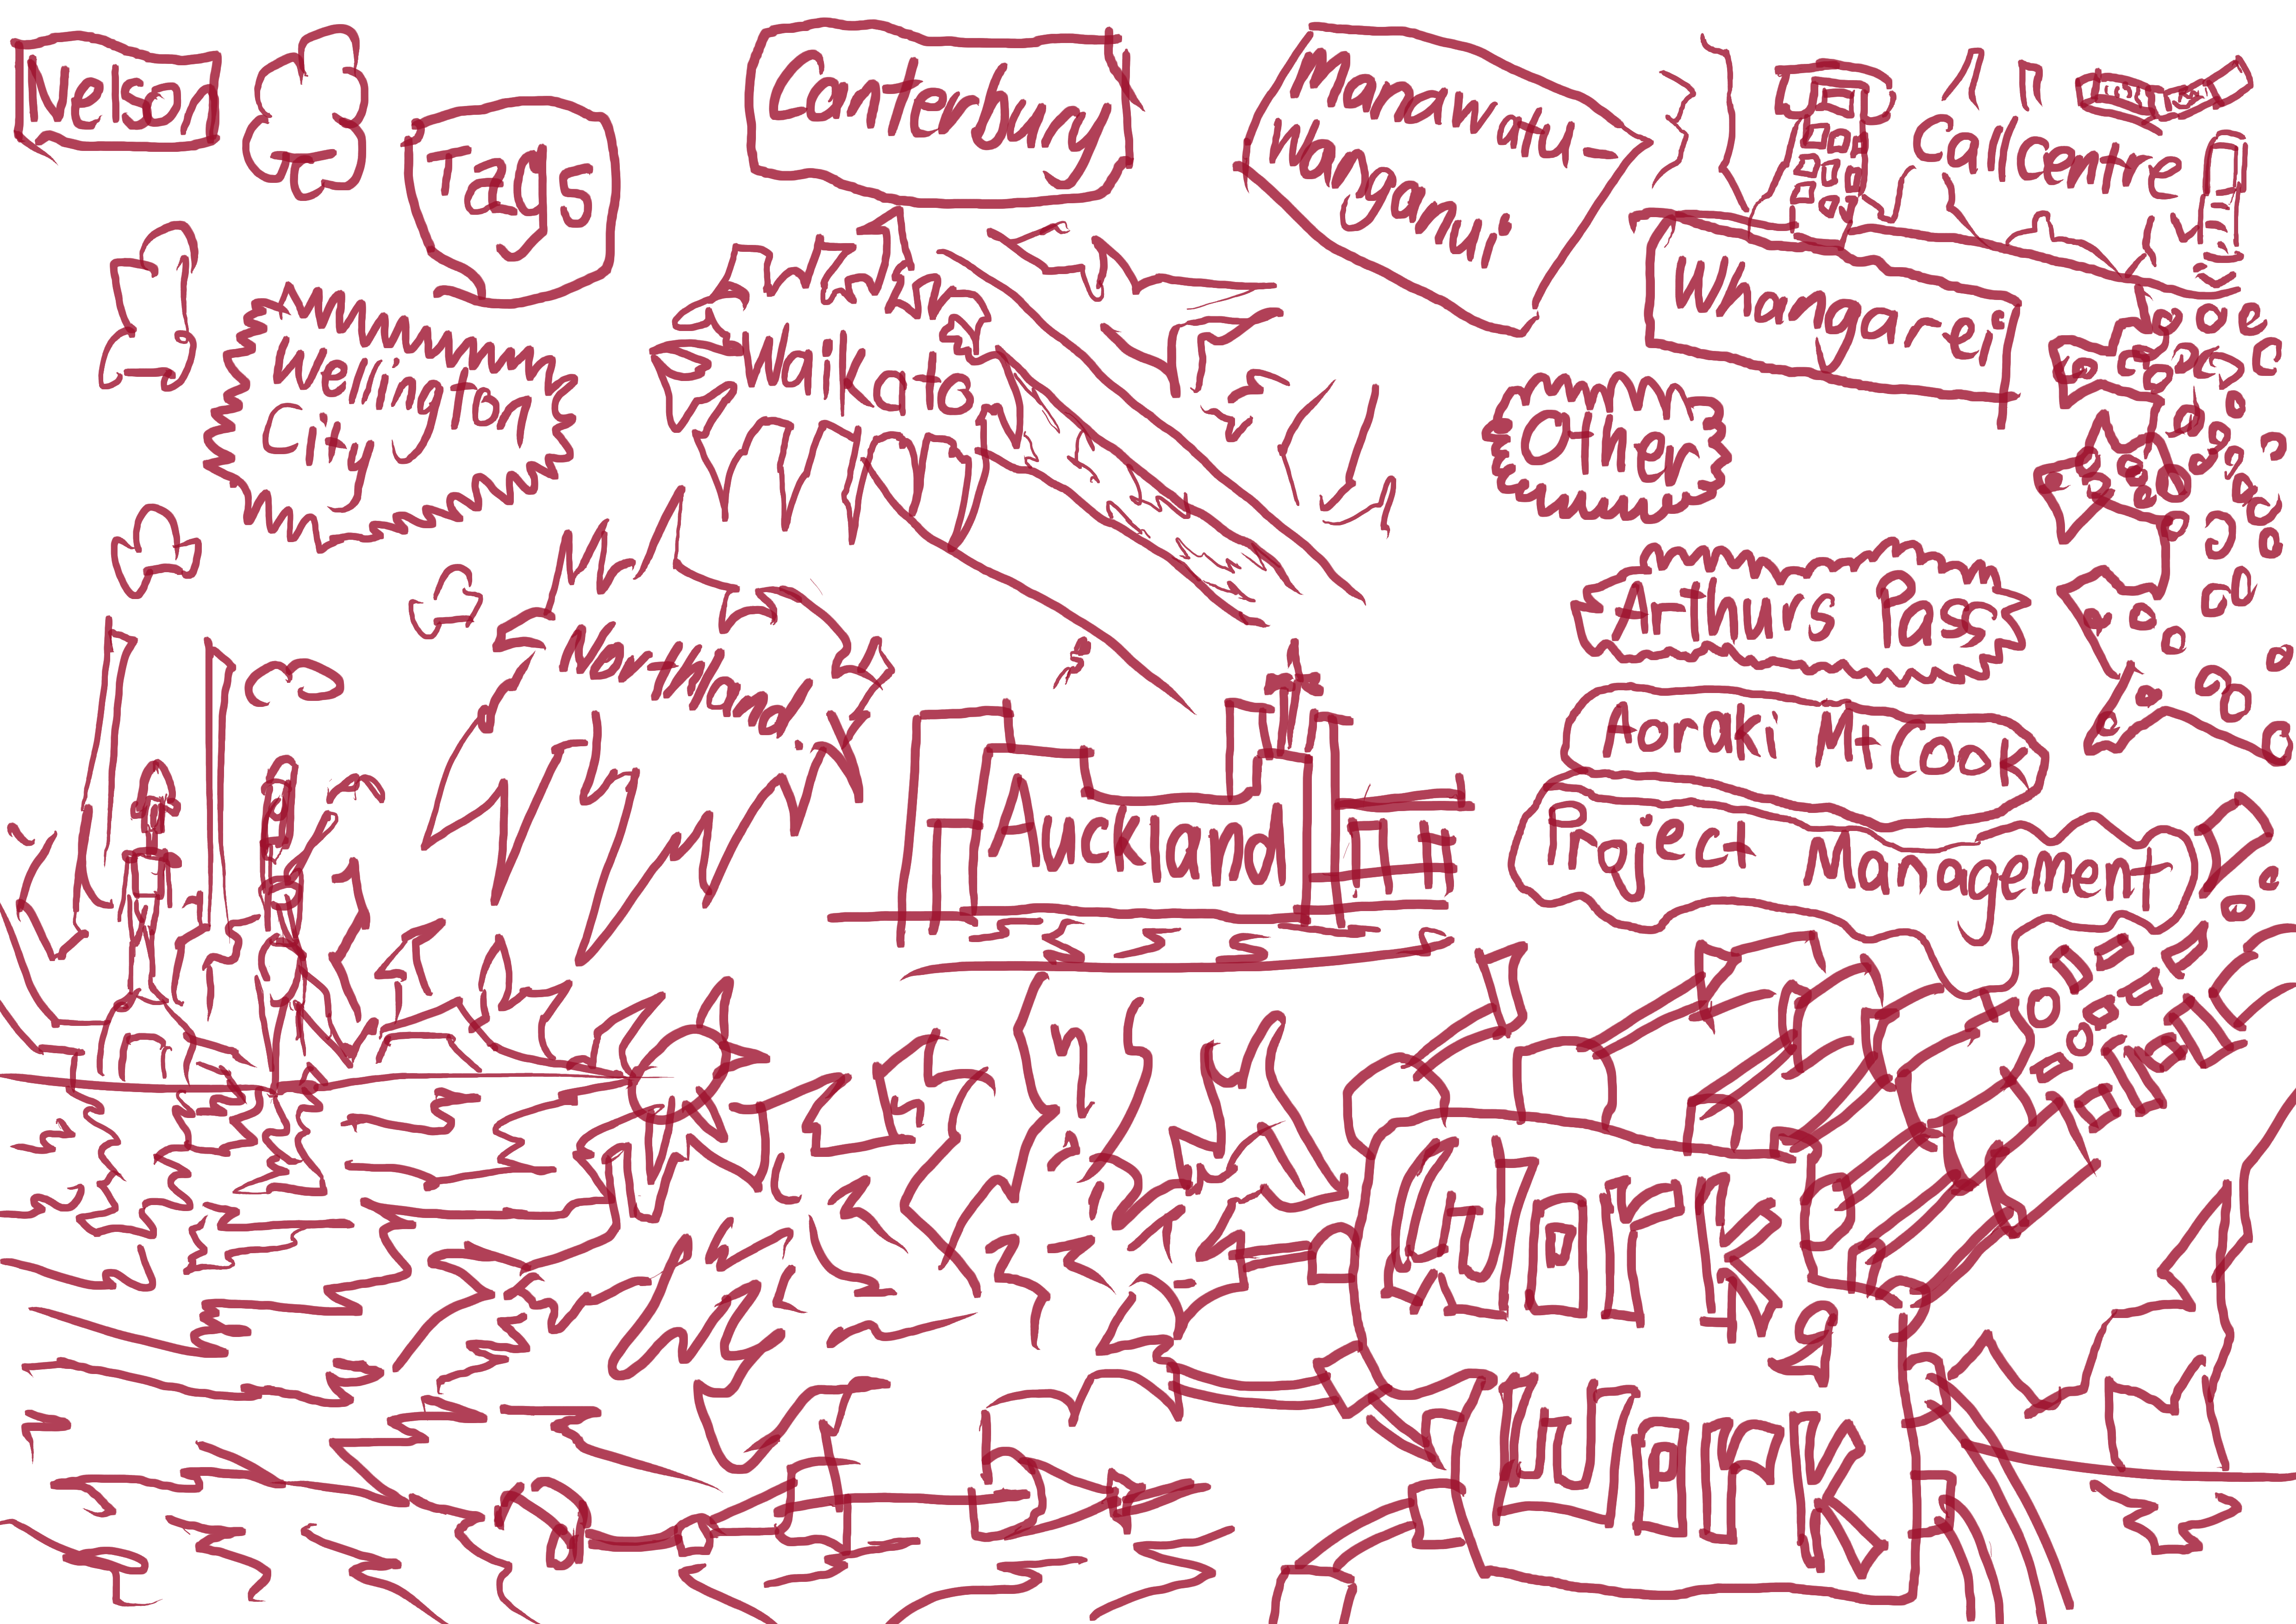 Nelson
Tags
Canterbury
Manawatu-
Wanganui
Callcentre
Whangarei
Wellington
City
Waikato
Other
Northland
Arthurs Pass
Aoraki Mt Cook
Auckland
Project Management
Work
Work